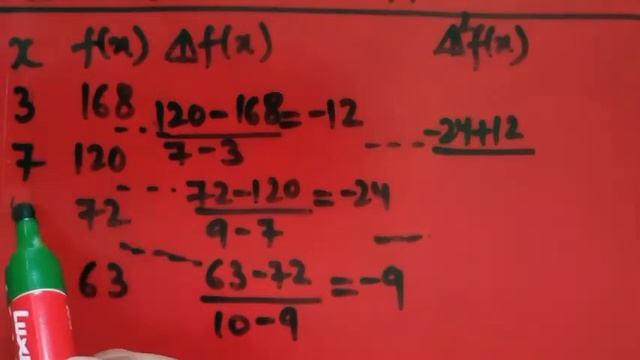 x f(x) Δf(x) Δ²f(x)
3 168
120-168/7-3 = -12
7 120
-24+12
72
72-120/9-7 = -24
63
63-72/10-9 = -9
LUX